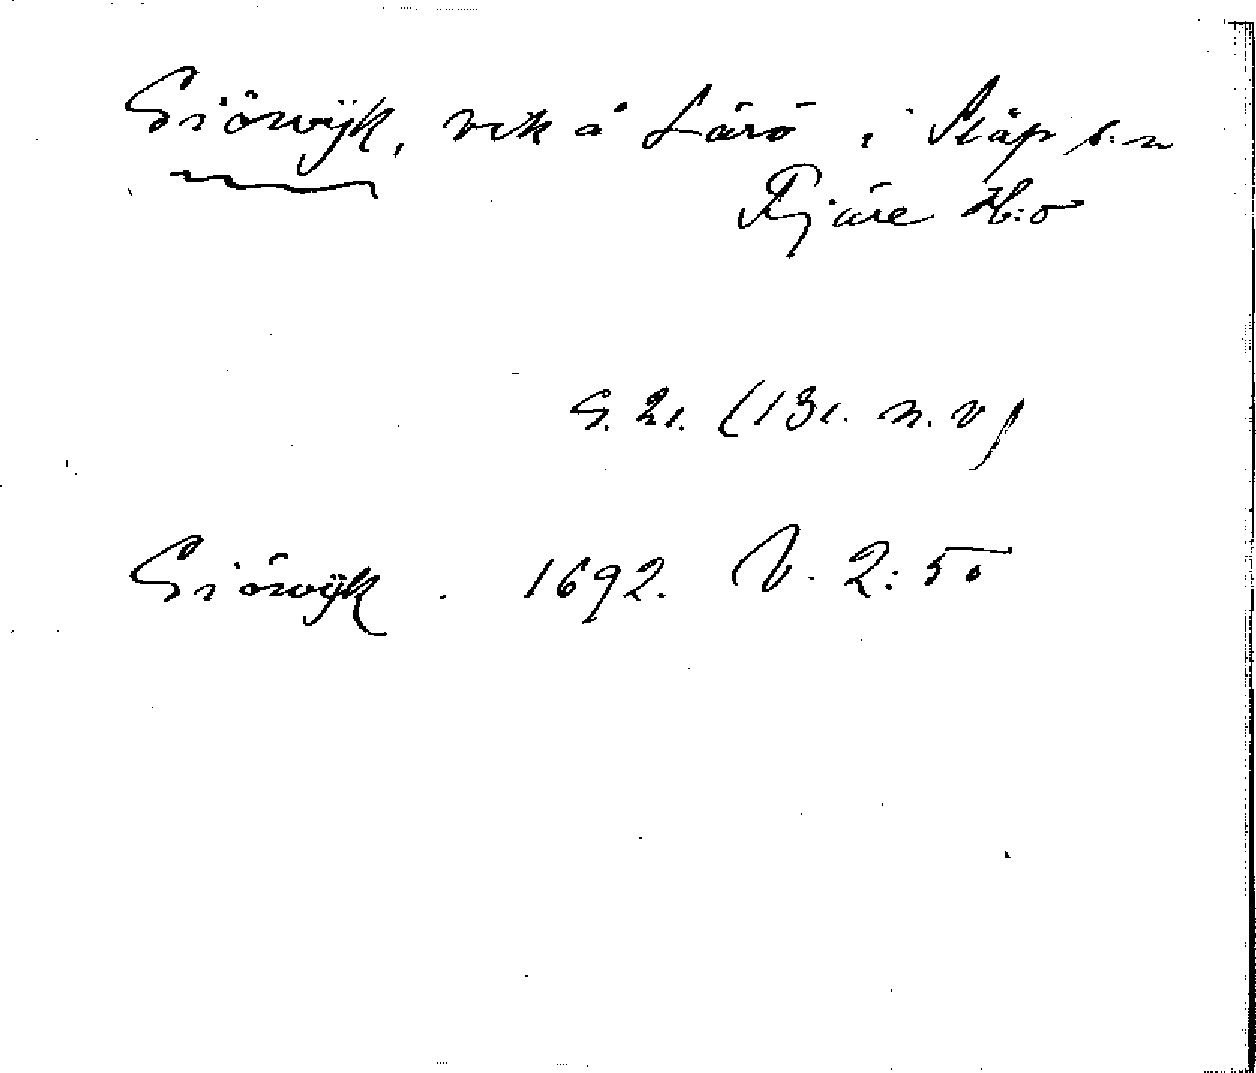 Siöwijk, vik å Särö i Släp s:n
Fjäre H:d
S. 21. (131. n. v)
Siöwijk. 1692. V. 2:50